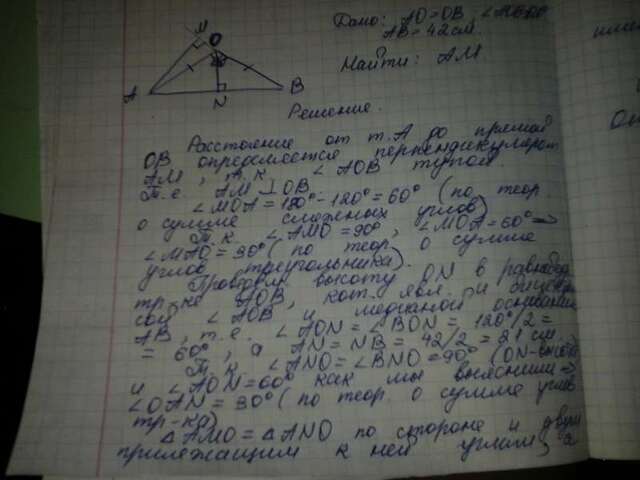 Дано: AO=OB, ∠AOB=120°
AB = 42 см.
Найти: AM
M
O
A
N
B
Решение.
Расстояние от т.A до прямой
OB определяется перпендикуляром
AM, т.к. ∠AOB тупой
т.е. AM⊥OB
∠MOA=180°-120°=60° (по теор.
о сумме смежных углов)
Т.к. ∠AMO=90°, ∠MOA=60°⇒
∠MAO=30° (по теор. о сумме
углов треугольника).
Проведем высоту ON в равнобед.
тр-ке AOB, кот. явл. и биссектри
сой ∠AOB и медианой основания
AB, т.е. ∠AON=∠BON=120°/2=
=60°, а AN=NB=42/2=21 см.
Т.к. ∠ANO=∠BNO=90° (ON-высота
и ∠AON=60° как мы выяснили⇒
∠OAN=30° (по теор. о сумме углов
тр-ка)
△AMO=△ANO по стороне и двум
прилежащим к ней углам, а